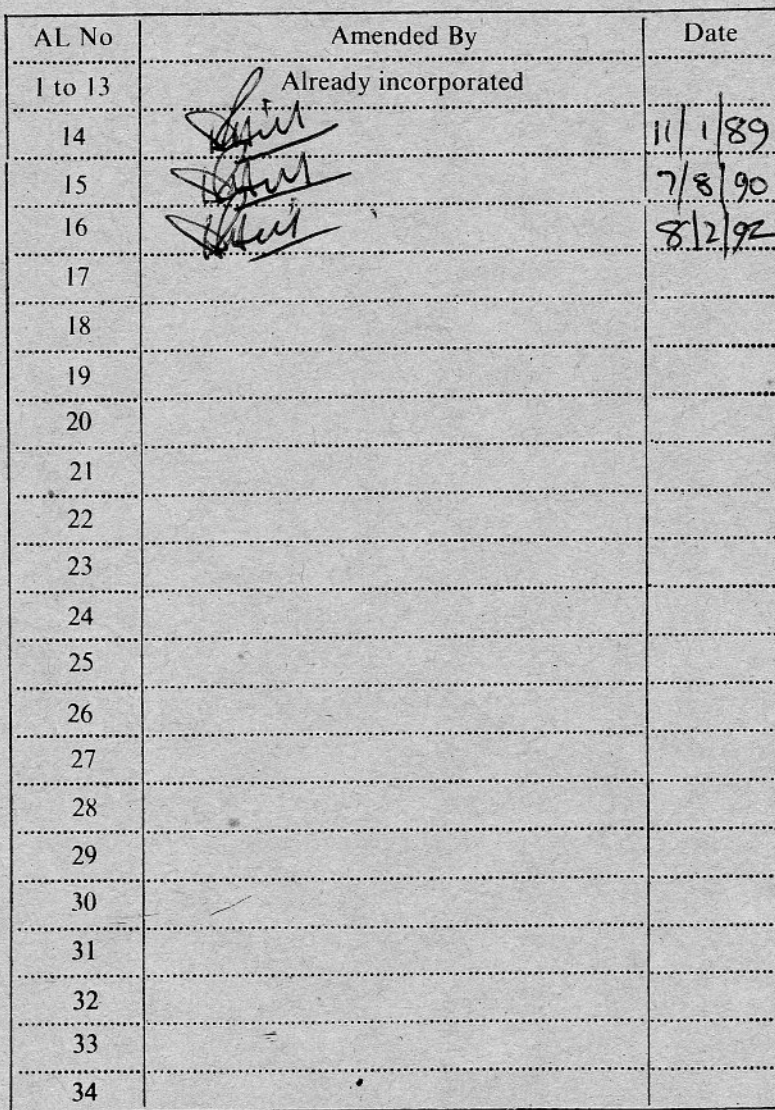 AL No Amended By Date
1 to 13 Already incorporated
14 11/1/89
15 7/8/90
16 8/2/92
17
18
19
20
21
22
23
24
25
26
27
28
29
30
31
32
33
34